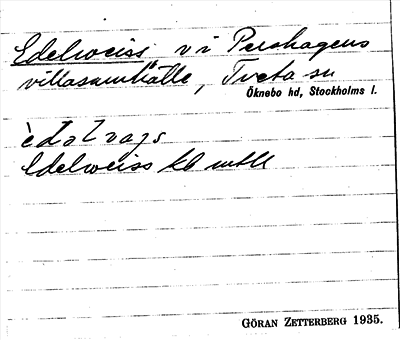 Edelweiss v i Pershagens
villasamhälle, Tveta sn
Öknebo hd, Stockholms l.
Edelweiss kb mtll
GÖRAN ZETTERBERG 1935.